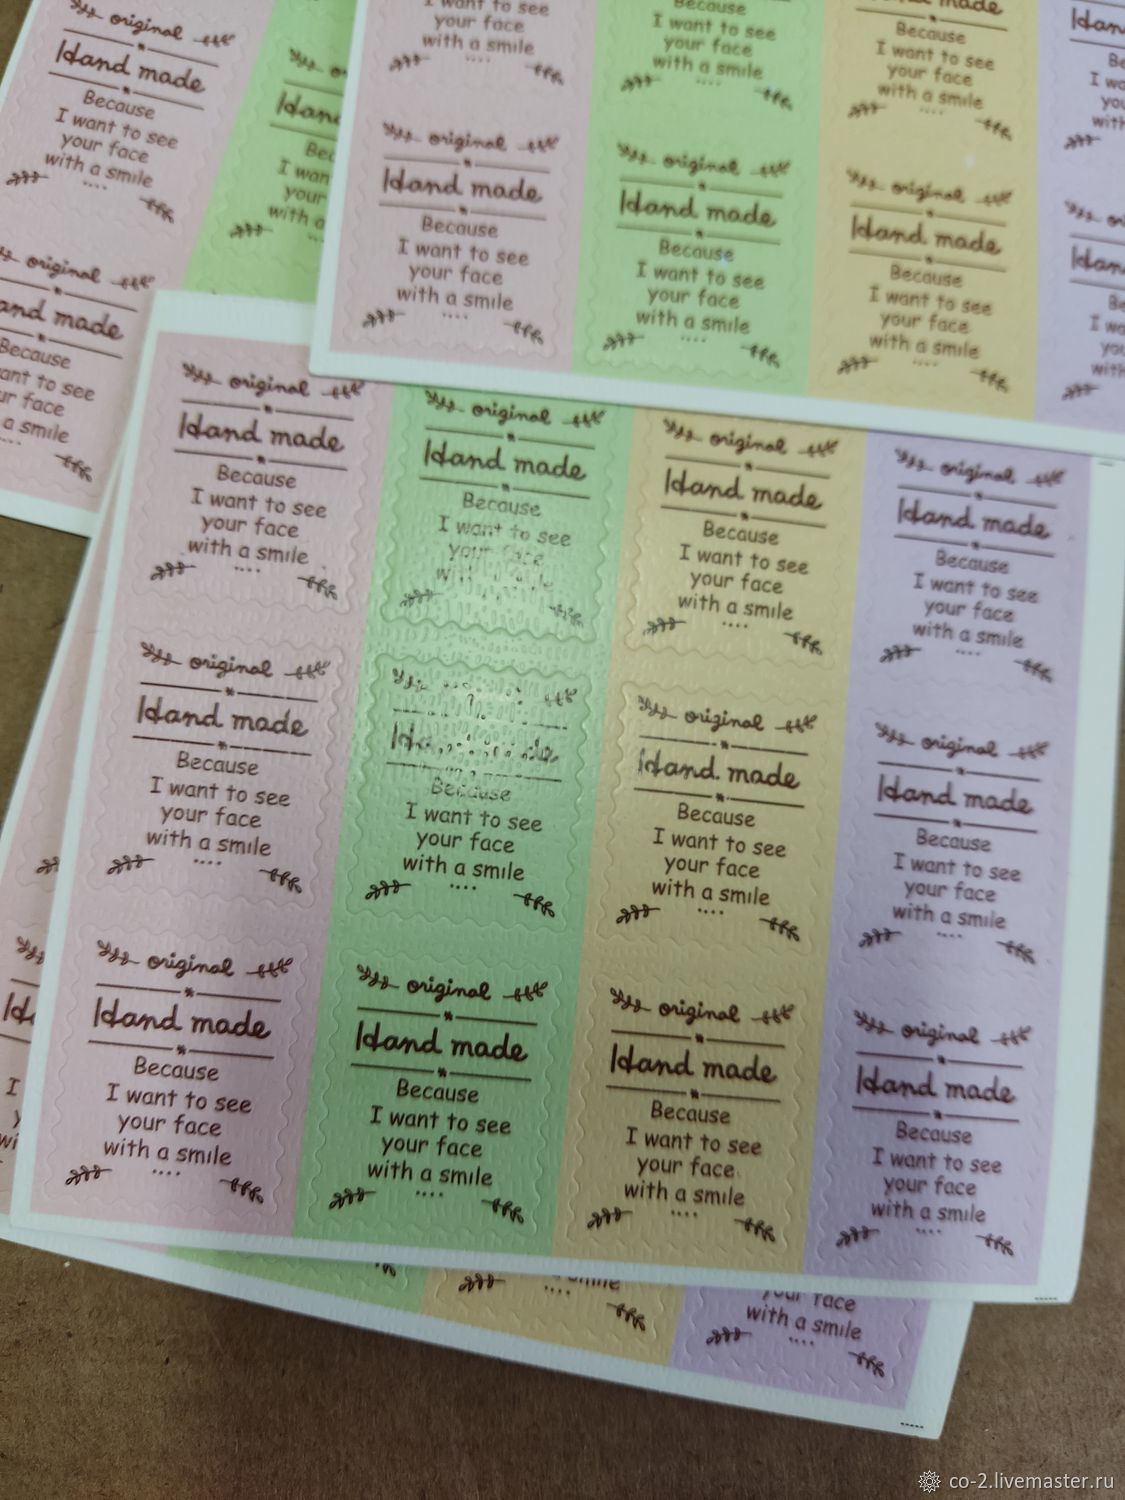 original
Hand made
Because
I want to see
your face
with a smile
original
Hand
Because
I want
your
with a
I want to see
your face
with a smile
original
Hand made
Because
I want to see
your face
with a smile
Because
I want to see
your face
with a smile
original
Hand made
Because
I want to see
your face
with a smile
made
Because
I want to see
your face
with a smile
original
Hand made
Because
I want to see
your face
with a smile
original
made
Because
to see
face
a smile
original
Hand made
Because
I want to see
your face
with a smile
original
Hand made
Because
I want to see
your face
original
Hand made
Because
I want to see
your face
with a smile
original
Hand made
Because
I want to see
your face
with a smile
original
Hand made
Because
I want to see
your face
with a smile
Because
I want to see
your face
with a smile
original
Hand made
Because
I want to see
your face
with a smile
original
Hand made
Because
I want to see
your face
with a smile
original
Hand made
Because
I want to see
your face
with a smile
original
Hand made
Because
I want to see
your face
with a smile
original
Hand made
Because
I want to see
your face
with a smile
original
Hand made
Because
I want to see
your face
with a smile
your face
with a smile
co-2.livemaster.ru